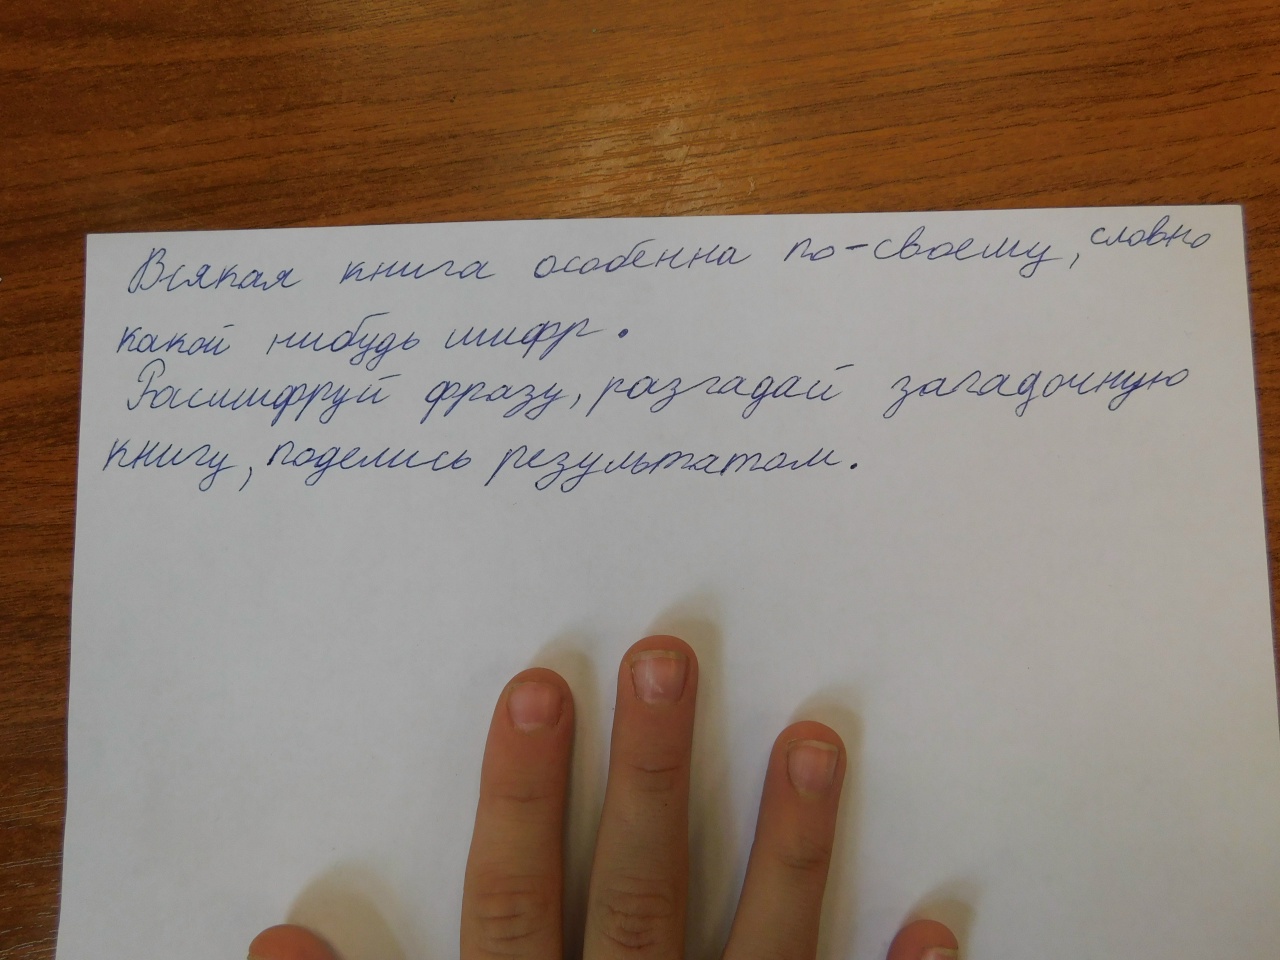 Всякая книга особенна по-своему, словно
какой нибудь шифр.
Расшифруй фразу, разгадай загадочную
книгу, поделись результатом.